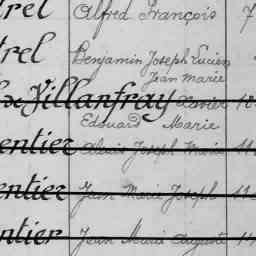 trel Alfred François 7
trel Benjamin Joseph Lucien
Jean Marie
Villanfray Xavier
Edouard Marie
entier Alexis Joseph Marie 11
entier Jean Marie Joseph 11
ntier Jean Marie Auguste 14